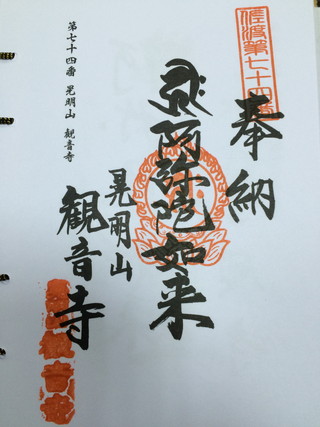 佐渡第七十四番
奉納
阿弥陀如来
晃明山
観音寺
第七十四番 晃明山 観音寺